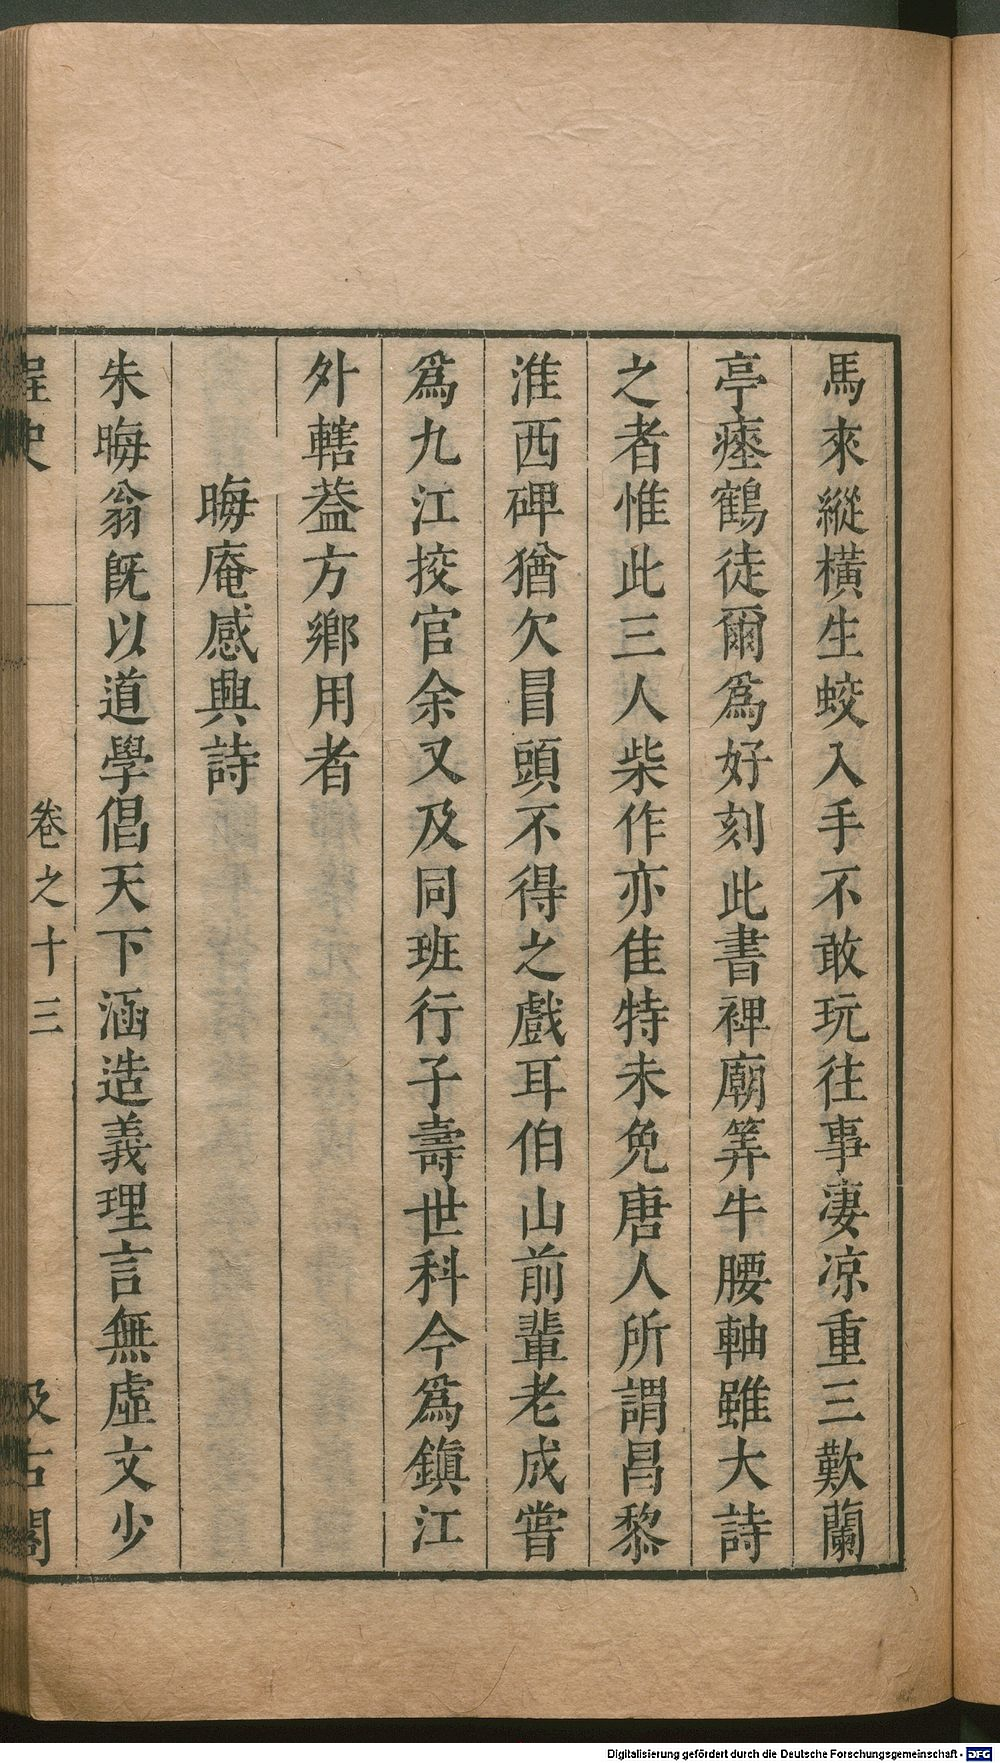 馬來縱橫生蛟入手不敢玩往事淒凉重三歎蘭
亭瘞鶴徒爾爲好刻此書裨廟筭牛腰軸雖大詩
之者惟此三人柴作亦佳特未免唐人所謂昌黎
淮西碑猶欠冒頭不得之戲耳伯山前輩老成嘗
爲九江挍官余又及同班行子壽世科今爲鎭江
外轄葢方鄉用者
晦庵感興詩
朱晦翁旣以道學倡天下涵造義理言無虛文少
桯史 卷之十三 汲古閣
Digitalisierung gefördert durch die Deutsche Forschungsgemeinschaft - DFG